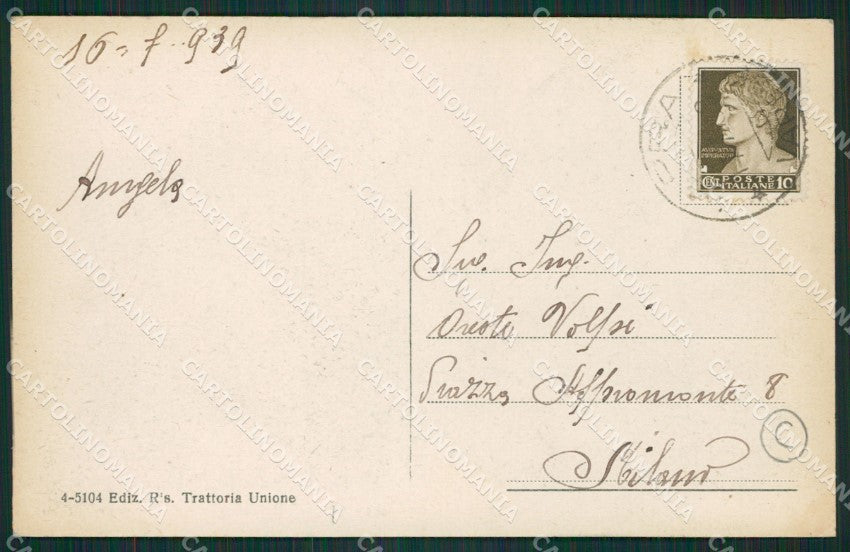 16 = 7 - 939
Angelo
AVGVSTVS
IMPERATOR
CENT. POSTE ITALIANE 10
Ing.
Oreste Volpi
Piazza Aspromonte 8
Milano
C
4-5104 Ediz. R's. Trattoria Unione
CARTOLINOMANIA